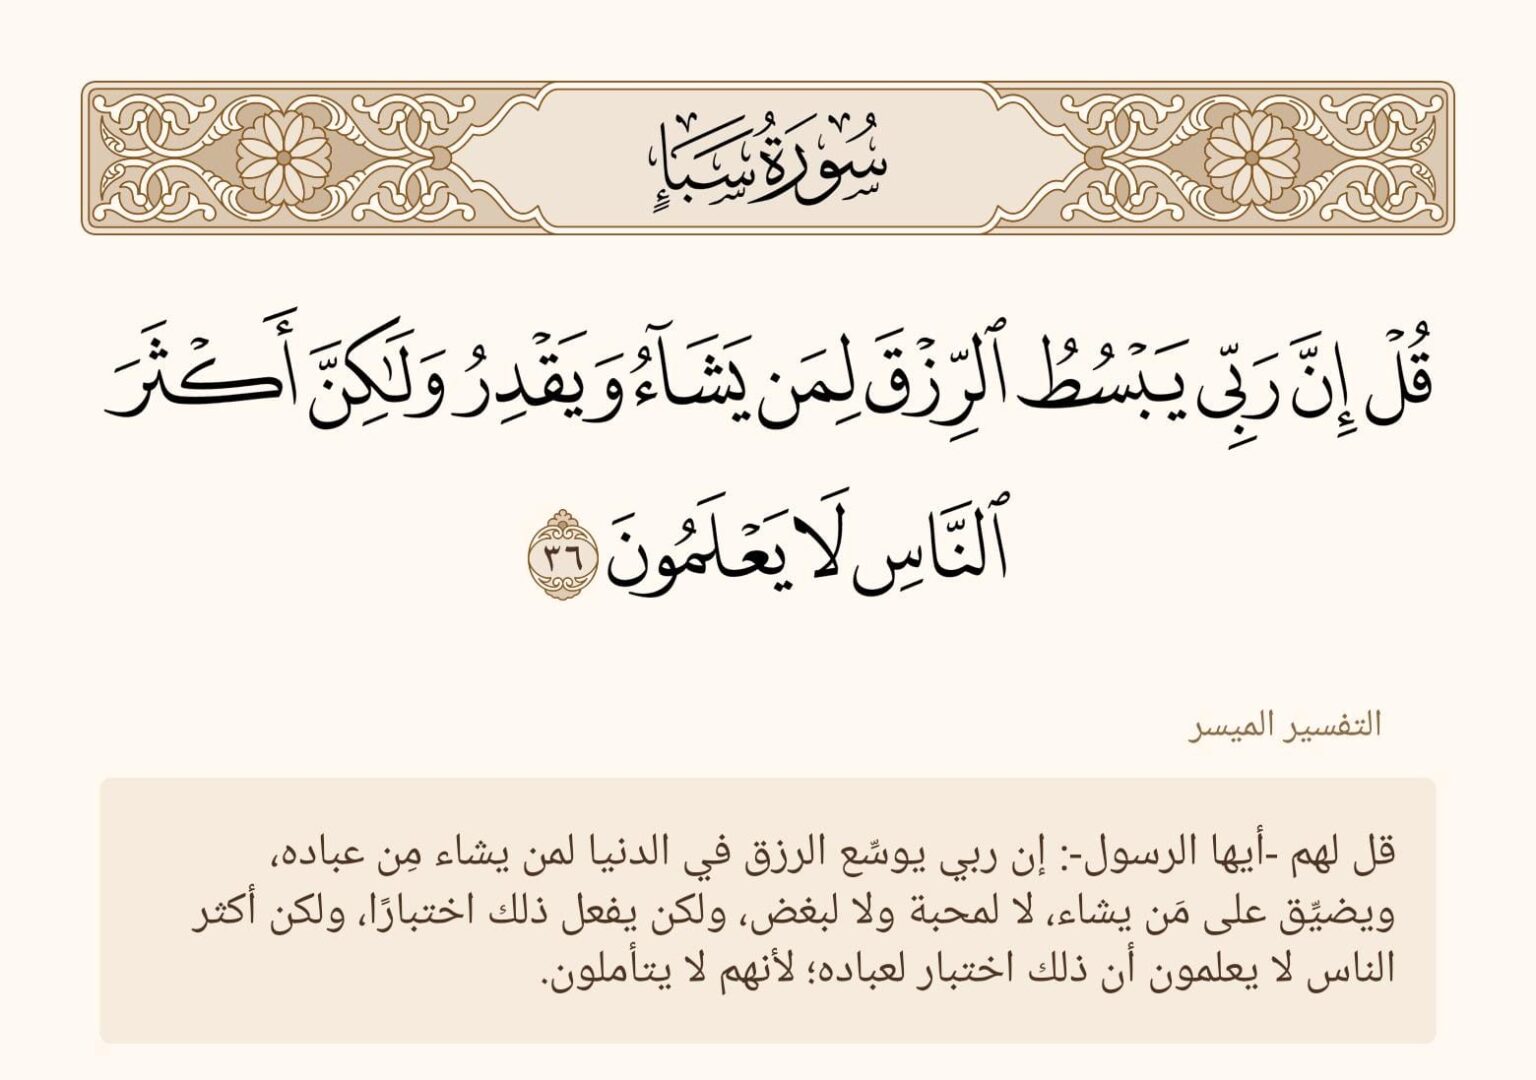 سُورَةُ سَبَإٍ
قُلْ إِنَّ رَبِّي يَبْسُطُ ٱلرِّزْقَ لِمَن يَشَآءُ وَيَقْدِرُ وَلَٰكِنَّ أَكْثَرَ
ٱلنَّاسِ لَا يَعْلَمُونَ ٣٦
التفسير الميسر
قل لهم -أيها الرسول-: إن ربي يوسِّع الرزق في الدنيا لمن يشاء مِن عباده،
ويضيِّق على مَن يشاء، لا لمحبة ولا لبغض، ولكن يفعل ذلك اختبارًا، ولكن أكثر
الناس لا يعلمون أن ذلك اختبار لعباده؛ لأنهم لا يتأملون.